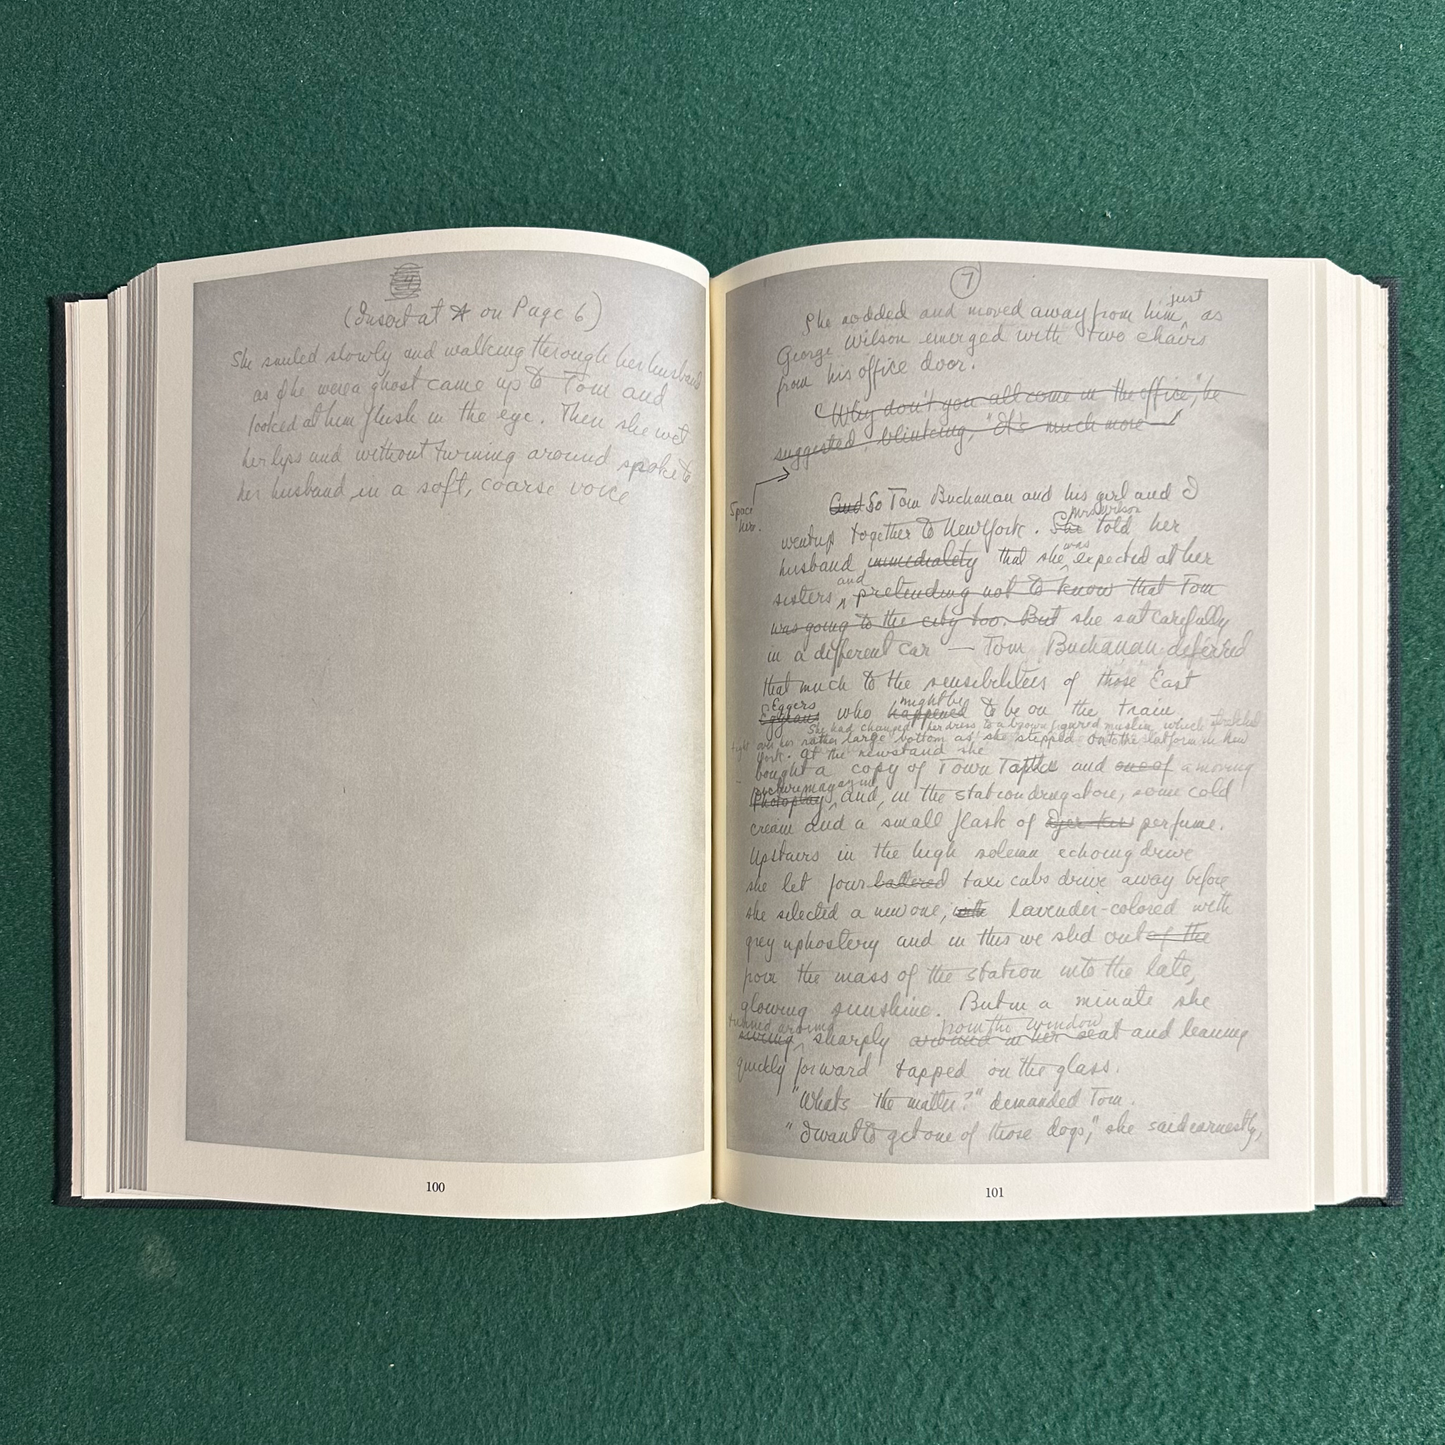 (Insert at * on Page 6)
She smiled slowly and walking through her husband
as if he were a ghost came up to Tom and
looked at him flush in the eye. Then she wet
her lips and without turning around spoke to
her husband in a soft, coarse voice
100
7
just
She nodded and moved away from him, as
George Wilson emerged with two chairs
from his office door.
"Why don't you all come in the office," he
suggested, blinking, "It's much more —"
Space
here.
And So Tom Buchanan and his girl and I
Mrs Wilson
went up together to New York. She told her
was
husband immediately that she expected at her
and
sisters, pretending not to know that Tom
was going to the city too. But she sat carefully
in a different car — Tom Buchanan deferred
that much to the sensibilities of those East
Eggers might be
who happened to be on the train.
She had changed her dress to a brown figured muslin which stretched
tight over her rather large bottom as she stepped onto the platform in New
York. At the newstand she
bought a copy of Town Tattle and one of a moving
picture magazine
Photoplay, and, in the station drug store, some cold
cream and a small flask of perfume.
Upstairs in the high solemn echoing drive
she let four battered taxi cabs drive away before
she selected a new one, lavender-colored with
grey upholstery and in this we slid out of the
from the mass of the station into the late,
glowing sunshine. But in a minute she
turned around from the window
swung sharply around in her seat and leaning
quickly forward tapped on the glass.
"Whats the matter?" demanded Tom.
"I want to get one of those dogs," she said earnestly,
101